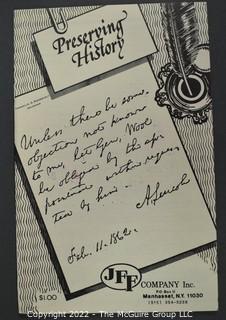 Preserving
History
Unless there be some
objection not known
to me, let Gen. Wool
be obliged by the
pointment within
by him.
A. Lincoln
Feb. 11. 1862.
JFF COMPANY Inc.
P.O. Box U
Manhasset, N.Y. 11030
$1.00
Copyright 2022 - The McGuire Group LLC